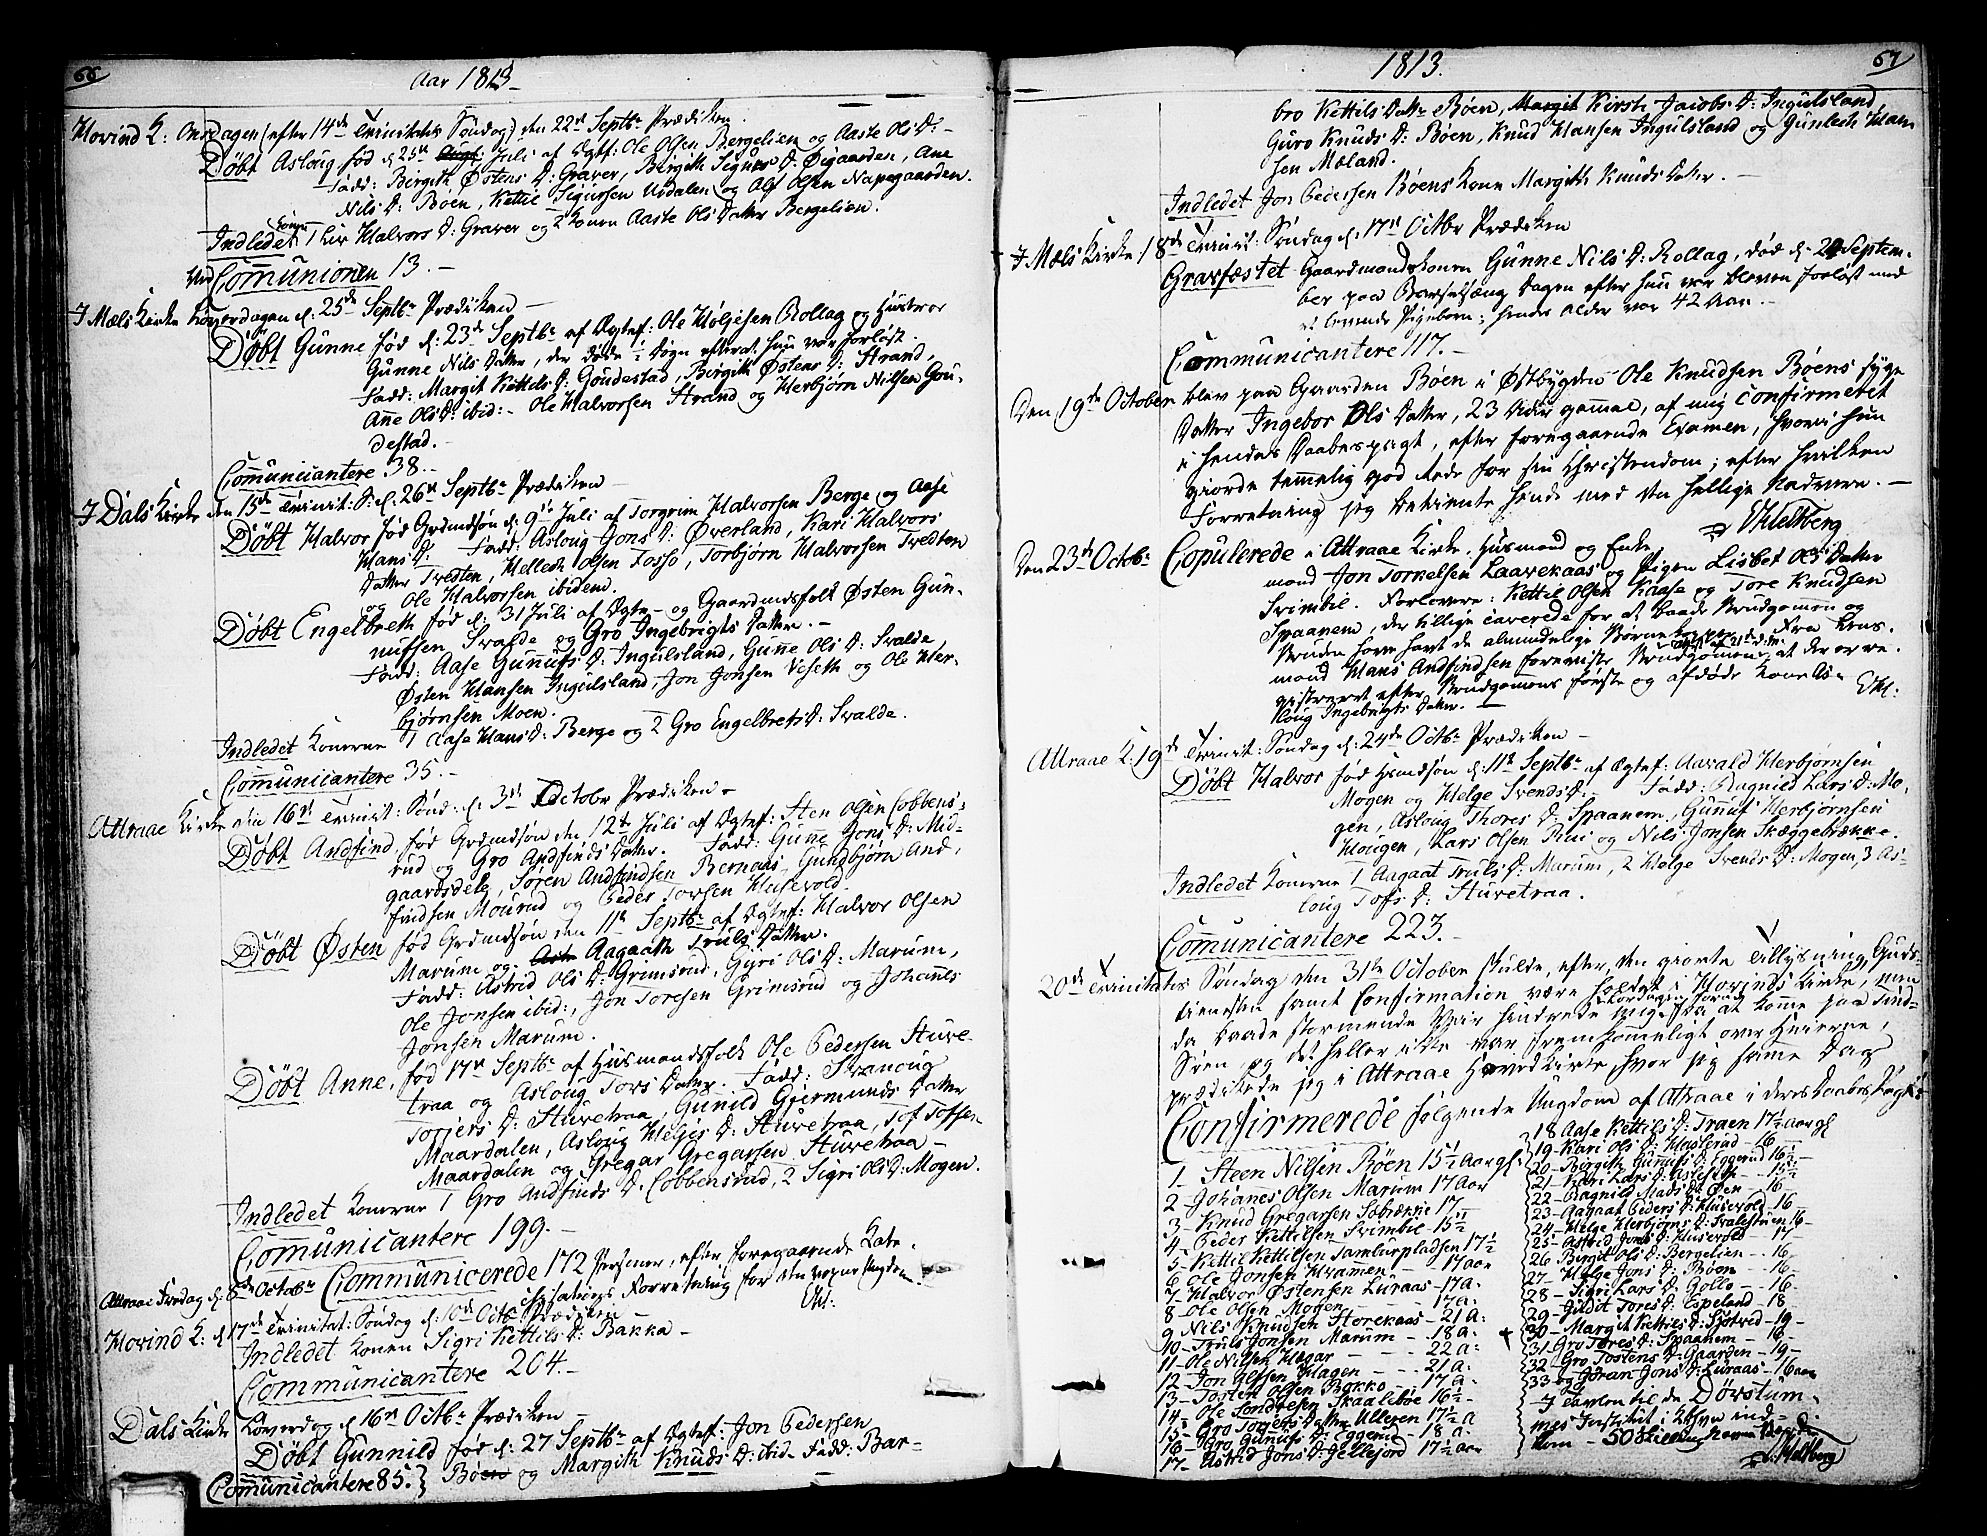 66
Aar 1813
Hovind K: Onsdagen (efter 14de Trinitatis Søndag) den 22de Septbr Prædiken.
Døbt Asloug, fød d: 25de Juli af Ægtef: Ole Olsen Bergelien og Aaste Ols D: -
Fadd: Birgith Østens D: Graver, Birgith Sigurs D: Øigaarden, Ane
Nils D: Bøen, Kettil Sigursen Urdalen og Ole Olsen Napegaarden.
Indledet Konen 1 Liv Halvors D: Graver og 2 Konen Aaste Ols Datter Bergelien.
Ved Communionen 13.-
I Mæls Kirke Løverdagen d: 25de Septbr Prædiken -
Døbt Gunne fød d: 23de Septbr af Ægtef: Ole Høljesen Rollag og Hustroe
Gunne Nils Datter, der døde 1 Døgn efterat hun var forløst.
Fadd: Margit Kettils D: Goudestad, Birgith Østens D: Strand,
Ane Ols D: ibid: - Ole Halvorsen Strand og Herbjørn Nilsen Gou-
destad.-
Communicantere 38.-
I Dals Kirke den 15de Trinit: S: d: 26de Septbr Prædiken -
Døbt Halvor fød Grdmdsøn d: 9de Juli af Torgrim Halvorsen Berge og Aase
Hans D: Fadd: Asloug Jons D: Øverland, Kari Halvors
Datter Tredten, Hellech Olsen Fosso, Torbjørn Halvorsen Tredten
og Ole Halvorsen ibidem.
Døbt Engelbreth fød d: 31 Juli af Ægte- og Gaardmdsfolk Østen Gun-
nufsen Svalde og Gro Ingebrigts Datter.-
Fadd: Aase Gunnufs D: Ingulsland, Gunne Ols D: Svalde,
Østen Hansen Ingulsland, Jon Jonsen Veseth og Ole Her-
bjørnsen Moen.
Indledet Konerne 1 Aase Hans D: Berge og 2 Gro Engelbrets D: Svalde.
Communicantere 35.-
Attraae Kirke den 16de Trinit: Sønd: d: 3de October Prædiken -
Døbt Andfind, fød Grdmdsøn den 12te Juli af Ægtef: Sten Olsen Cobbens-
rud og Gro Andfinds Datter. Fadd: Gunne Jons D: Mid-
gaardsdele, Søren Andfindsen Bernaas, Gundbjørn And-
findsen Mourud og Peder Torsen Husevold.
Døbt Østen fød Grdmdsøn den 11te Septbr af Ægtef: Halvor Olsen
Marum og Aagaath Truls Datter.
Fadd: Astrid Ols D: Grimsrud, Gyri Ols D: Marum,
Ole Jonsen ibid:, Jon Toresen Grimsrud og Johanes
Jonsen Marum.
Døbt Anne, fød 17de Septbr af Husmandsfolk Ole Pedersen Sturve-
traa og Asloug Tors Datter. Fadd: Svanoug
Torjers D: Sturvetraa, Gunild Gjermunds Datter
Maardalen, Asloug Heljes D: Sturvetraa, Tof Tofsen
Maardalen og Gregar Gregarsen Sturvetraa -
Indledet Konerne 1 Gro Andfinds D: Cobbensrud, 2 Sigri Ols D: Mogen.
Communicantere 199.-
Attraae Fredag d: 8de Octobr Communicerede 172 Personer, efter foregaaende Cate-
chisations Forretning for den voxne Ungdom. EHl:
Hovind K: d 17de Trinitat: Søndag d: 10de Octbr Prædiken -
Indledet Konen Sigri Kettils D: Bakka -
Communicantere 204.-
Dals Kirke Løverdag d 16de Octbr Prædiken -
Døbt Gunnild fød d: 27 Septbr af Ægtef: Jon Pedersen
Bøen og Margith Knuds D: ibid- Fadd: Bar-
Communicantere 85.
1813.
67
bro Kettils Datter Bøen, Kirsti Jacobs D: Ingulsland
Guro Knuds D: Bøen, Knud Hansen Ingulsland og Gunlech Han-
sen Mæland.
Indledet Jon Pedersen Bøens Kone Margith Knuds Datter.-
I Mæls Kirke 18de Trinit: Søndag d: 17de Octbr Prædiken
Gravfæstet Gaardmandskonen Gunne Nils D: Rollag, død d: 24 Septem-
ber paa Barselsæng Dagen efter hun var bleven forløst med
et levende Pigebarn; hendes Alder var 42 Aar.-
Communicantere 117.-
Den 19de October blev paa Gaarden Bøen i Østbygden Ole Knudsen Bøens syge
Datter Ingebor Ols Datter, 23 Aar gammel, af mig confirmeret
i hendes Daabespagt, efter foregaaende Examen, hvori hun
giorde temmelig god Rede for sin Christendom; efter hvilken
Forretning jeg betiente hende med den hellige Nadvere.-
EHelberg
Den 23de Octbr Copulerede i Attraae Kirke, Husmand og Enke-
mand Jon Torkelsen Laavekaas og Pigen Lisbet Ols Datter
Svimbil. Forlovere: Kettil Olsen Kaase og Tore Knudsen
Spaanem, der tillige caverede for at baade Brudgomen og
Bruden have havt de almindelige Børnekopper. Fra Lens-
mand Hans Andfindsen foreviste Brudgomen at der er re-
gistreret efter Brudgomens første og afdøde Kone As-
loug Ingebrigts Datter. EHl:
Attraae K: 19de Trinit: Søndag d: 24de Octbr Prædiken -
Døbt Halvor fød Hsmdsøn d: 11te Septbr af Ægtef: Aavald Herbjørnsen
Mogen og Helge Svends D:- Fadd: Ragnild Lars D: Mo-
gen, Asloug Thores D: Spaanem, Gunuf Herbjørnsen
Hougen, Lars Olsen Rui og Nils Jonsen Skæggebrække.
Indledet Konerne 1 Aagaat Truls D: Marum, 2 Helge Svends D: Mogen, 3 As-
loug Tofs D: Sturvetraa.
Communicantere 223.-
20de Trinitatis Søndag den 31te October skulde, efter den giorte Tillysning, Guds-
tienesten samt Confirmation være holdet i Hovinds Kirke, men
da baade stormende Veir hindrede mig Løverdagen forud fra at komme paa Tind-
søen og det heller ikke var fremkommeligt over Heierne,
prædikede jeg i Attraae Hoved Kirke hvor jeg samme Dag
Confirmerede følgende Ungdom af Attraae i deres Daabes Pagt
1- Steen Nilsen Bøen 15½ Aar gl:
2- Johanes Olsen Marum 17 Aar
3- Knud Gregarsen Sæbrække 17-
4- Peder Kettilsen Svimbil - 15½
5- Kettil Kettilsen Tamlurpladsen 17½
6 Ole Jonsen Hvammen - 17 aar
7 Halvor Østensen Luraas - 17 a:
8- Ole Olsen Mogen - 17 a:
9 Nils Knudsen Storekaas - 21 a:
10- Truls Jonsen Marum - 18 a:
11- Ole Nilsen Hagar - 22 a:
12- Jon Olsen Hagen - 21 a:
13- Tosten Olsen Bakko - 17 a-
14- Ole Sondresen Skaalboe 16½-
15- Gro Torjers Datter Ulleren 17½ a
16- Gro Gunufs D: Eggerud - 18 a:
17- Astrid Jons D: Jellejord 17½ aar
18 Aase Kettils D: Traen 17½ aar gl
19- Kari Ols D: Haslerud - 16 -
20- Bergith Gunufs D: Eggerud 16½-
21- Kari Lars D: Aslefeth - 15½
22- Ragnild Mads D: Øen - 16-
23- Aagaat Peders D: Husevold 16
24- Helge Herbjørns D: Traletuen 16-
25- Astrid Jons D: Husevold - 17-
26 Birgit Ols D: Bergelien - 16-
27- Helge Jons D: Bøen - 16-
28- Sigri Lars D: Gollo - 16-
29- Jildit Tores D: Espeland 18
30- Margit Kettils D: Sjøtvid - 19-
31- Gro Tores D: Spaanem - 16-
32- Gro Tostens D: Gaarden - 19-
33 og Jøran Jons D: Luraas - 16 aar
I Tavlen til de Døvstum-
mes Institut i Kbhvn ind-
kom - 50 Skilling
EHelberg